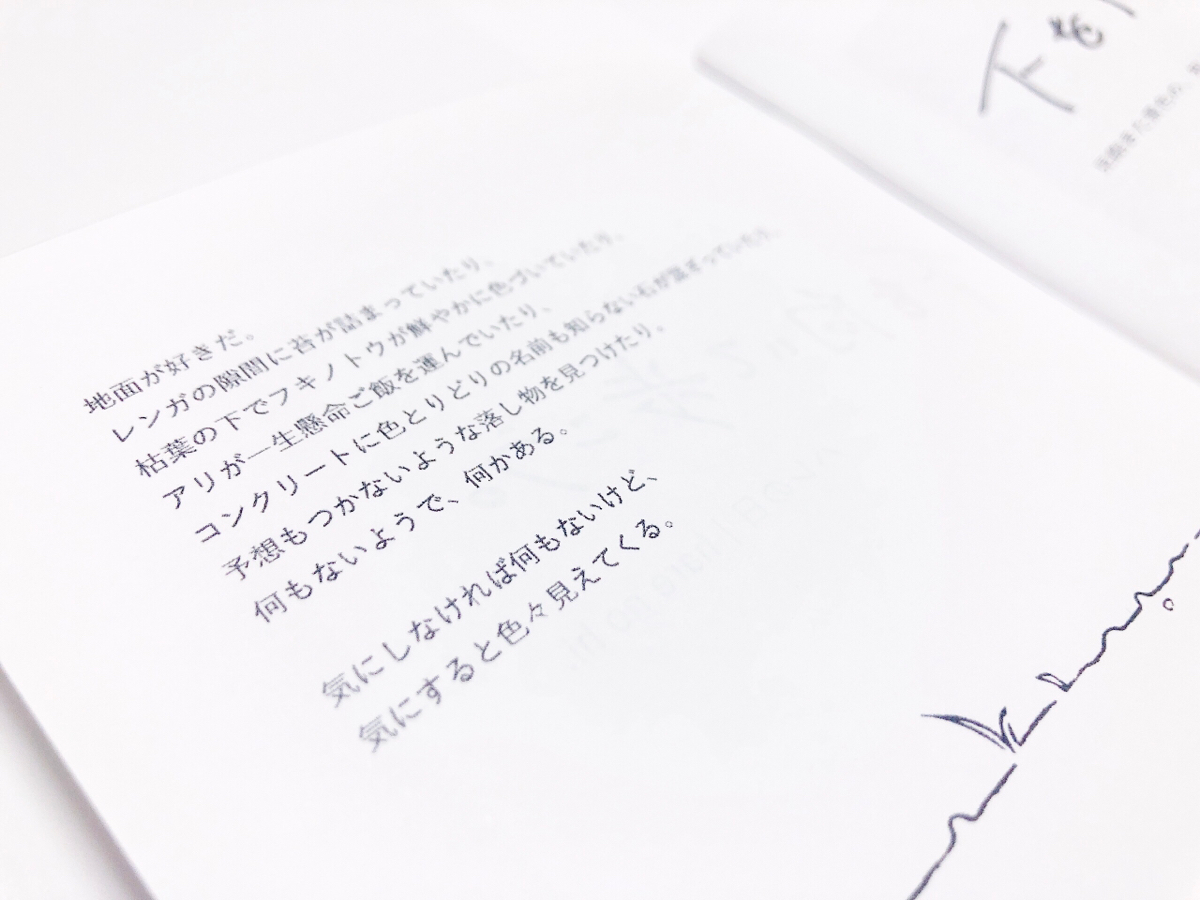 地面が好きだ。
レンガの隙間に苔が詰まっていたり、
枯葉の下でフキノトウが鮮やかに色づいていたり、
アリが一生懸命ご飯を運んでいたり、
コンクリートに色とりどりの名前も知らない石が混ざっていたり、
予想もつかないような落し物を見つけたり。
何もないようで、何かある。
気にしなければ何もないけど、
気にすると色々見えてくる。
下を